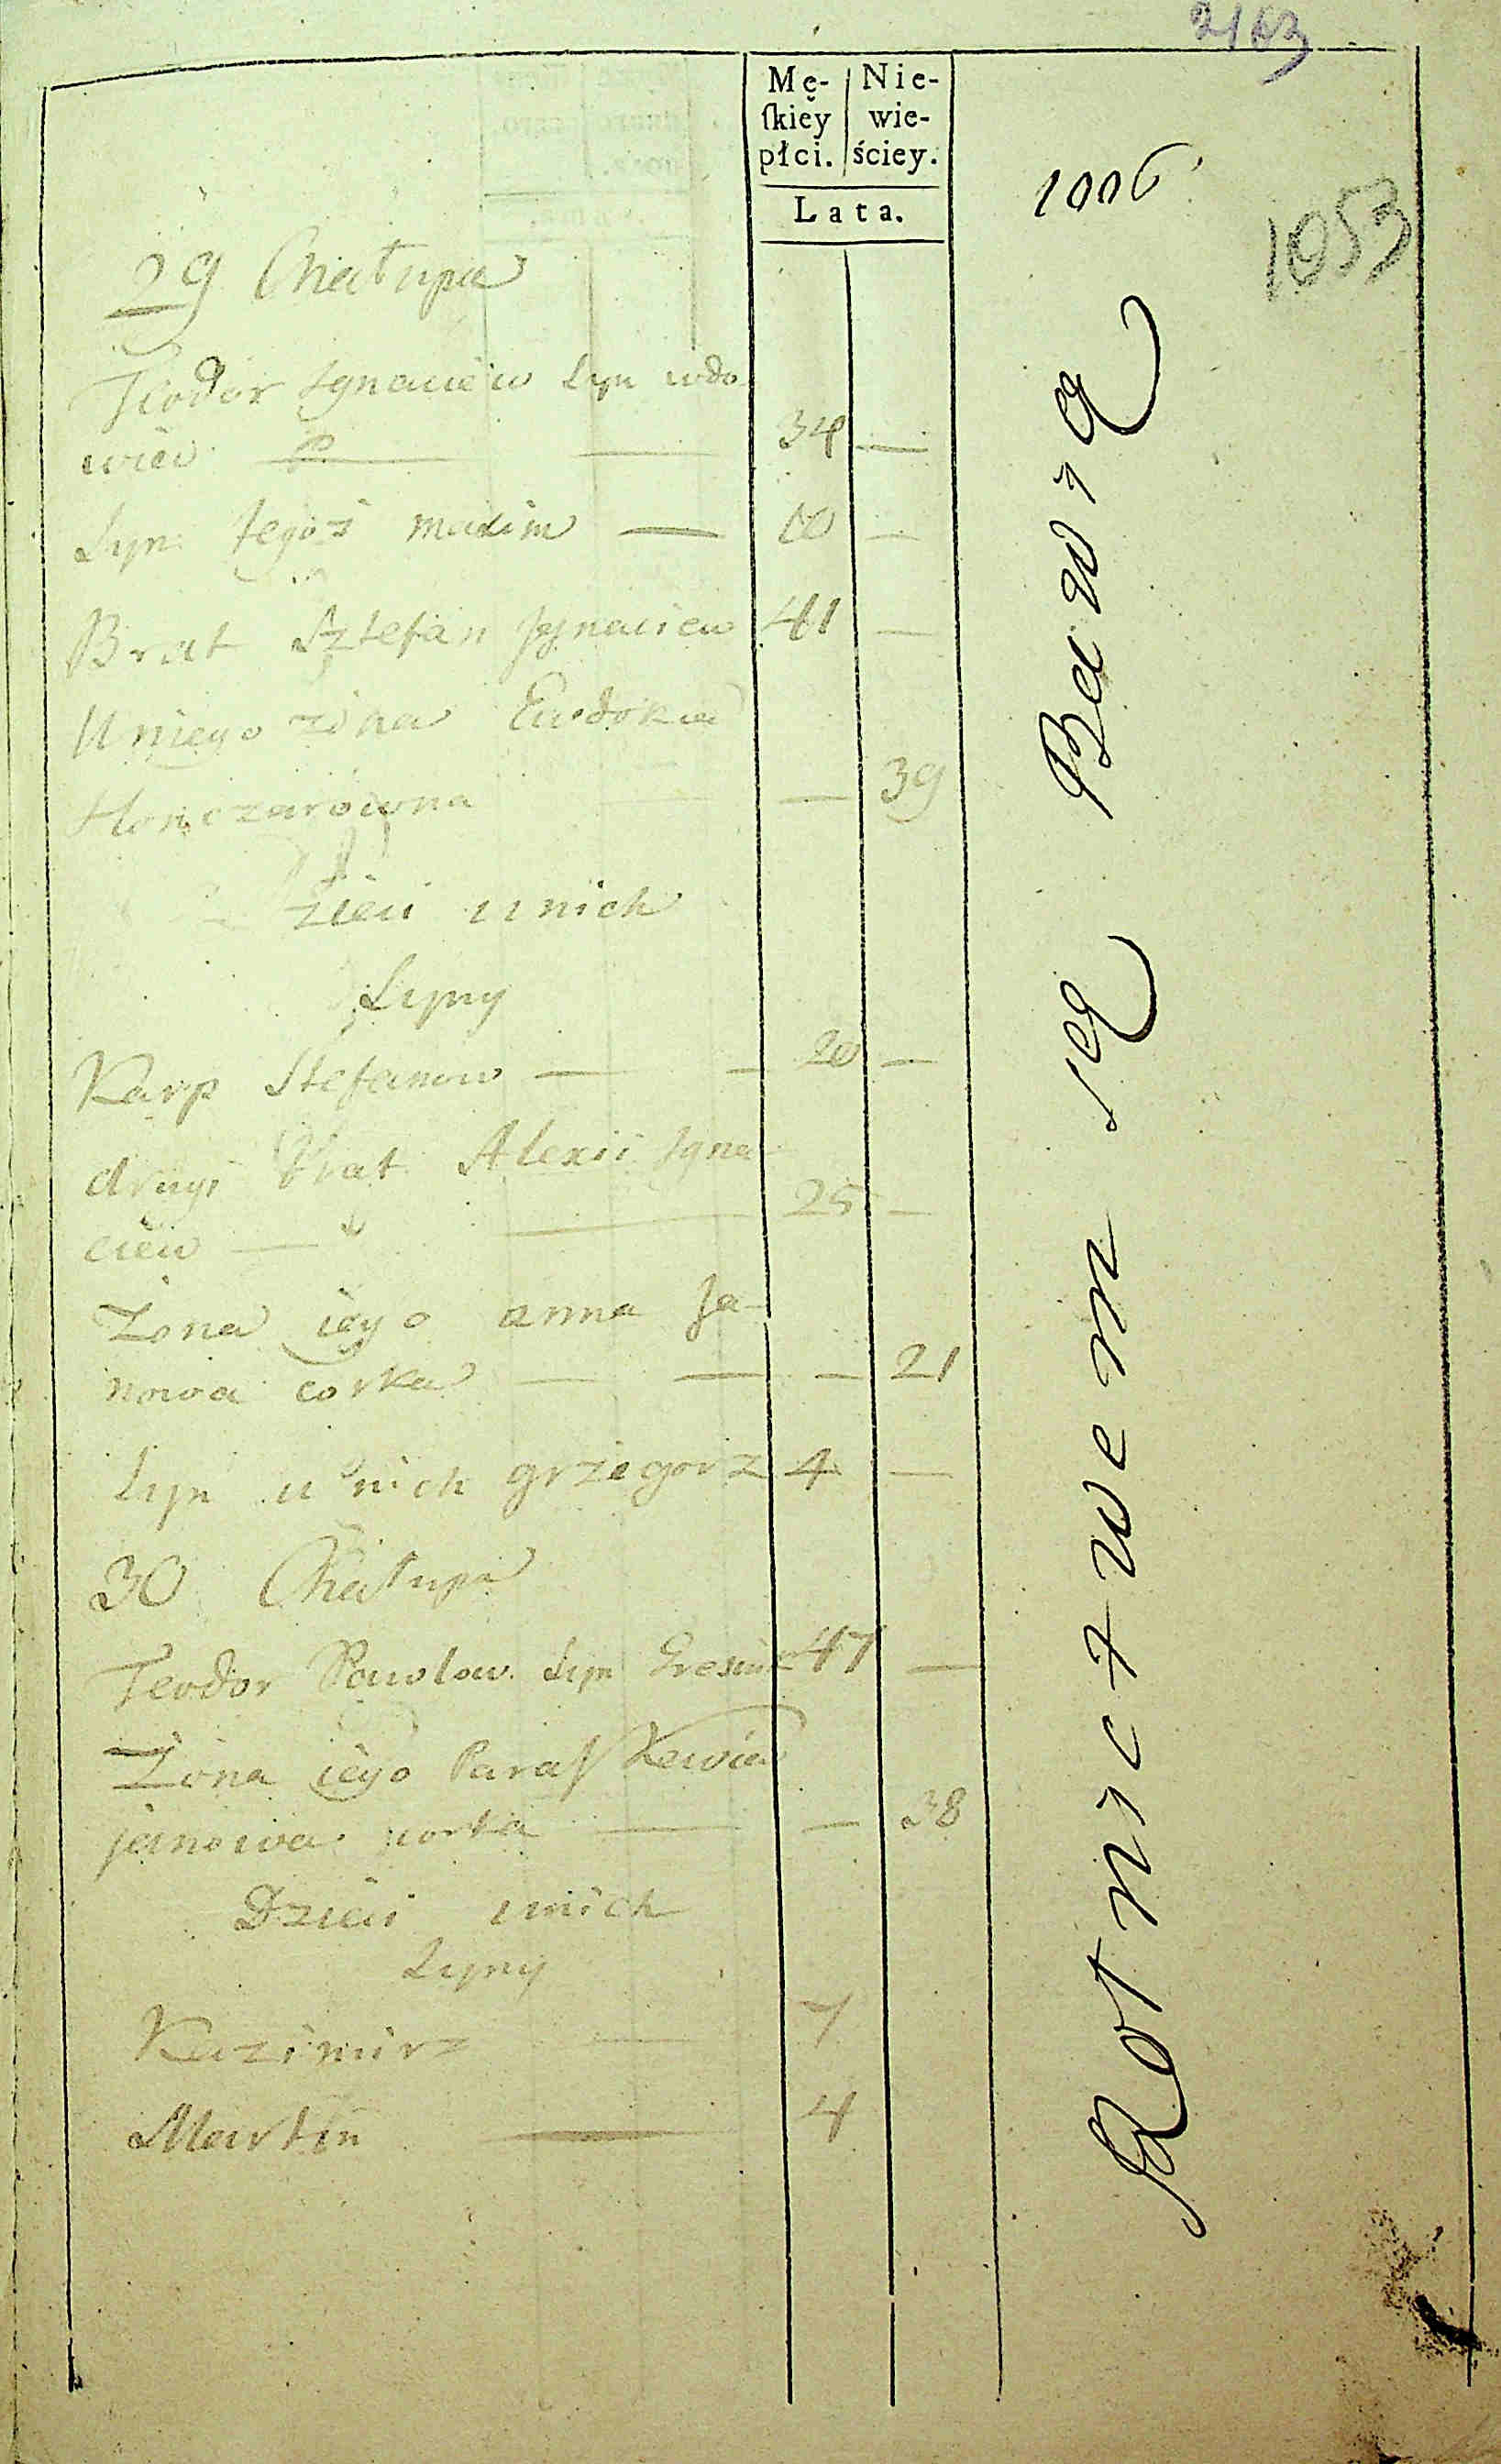 2163
Mę- Nie-
ſkiey wie-
płci. ściey.
Lata.
1006
1053
29 Chałupa
Teodor Ignaciew Syn wdo
wiec 34 —
Syn tegoż maxim — 10 —
Brat Sztefan Jgnaciew 41 —
U niego żona Eudokia
Honczarowna — 39
Dzieci u nich
Syny
Karp Stefanow — 20 —
drugi Brat Alexii Igna
ciew — 25 —
Zona iego anna Ja-
nowa corka — — — 21
Syn u nich grzegorz 4 —
30 Chałupa
Teodor Pawlow Syn 47 —
Zona iego Paraſkewia
janowa corka — — 38
Dzieci u nich
Syny
Kazimirz — 7
Martin — 4
Rotnictwem się Bawią